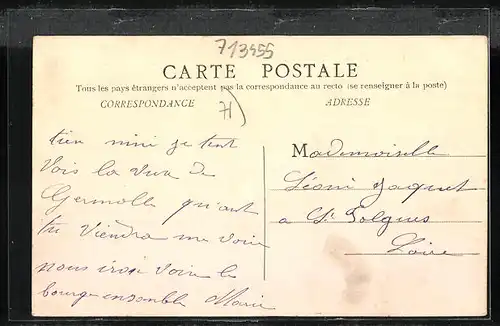 713455
CARTE POSTALE
Tous les pays étrangers n'acceptent pas la correspondance au recto (se renseigner à la poste)
CORRESPONDANCE
ADRESSE
tien mini je tent
vois la vue de
Germolle qu'ant
tu viendra me voir
nous iron voir le
bourg ensemble Marie
Mademoiselle
Léoni Jaquet
a St Polgues
Loire